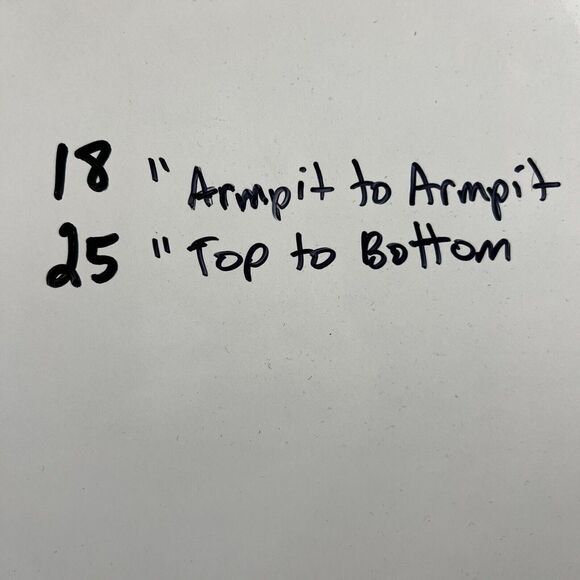 18 " Armpit to Armpit
25 " Top to Bottom